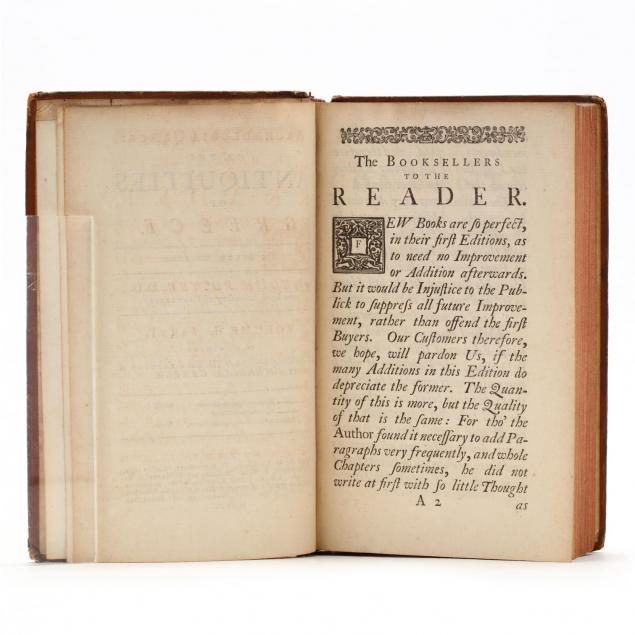 The BOOKSELLERS
TO THE
READER.
FEW Books are ſo perfect,
in their firſt Editions, as
to need no Improvement
or Addition afterwards.
But it would be Injuſtice to the Pub-
lick to ſuppreſs all future Improve-
ment, rather than offend the firſt
Buyers. Our Cuſtomers therefore,
we hope, will pardon Us, if the
many Additions in this Edition do
depreciate the former. The Quan-
tity of this is more, but the Quality
of that is the ſame: For tho' the
Author found it neceſſary to add Pa-
ragraphs very frequently, and whole
Chapters ſometimes, he did not
write at firſt with ſo little Thought
A 2 as